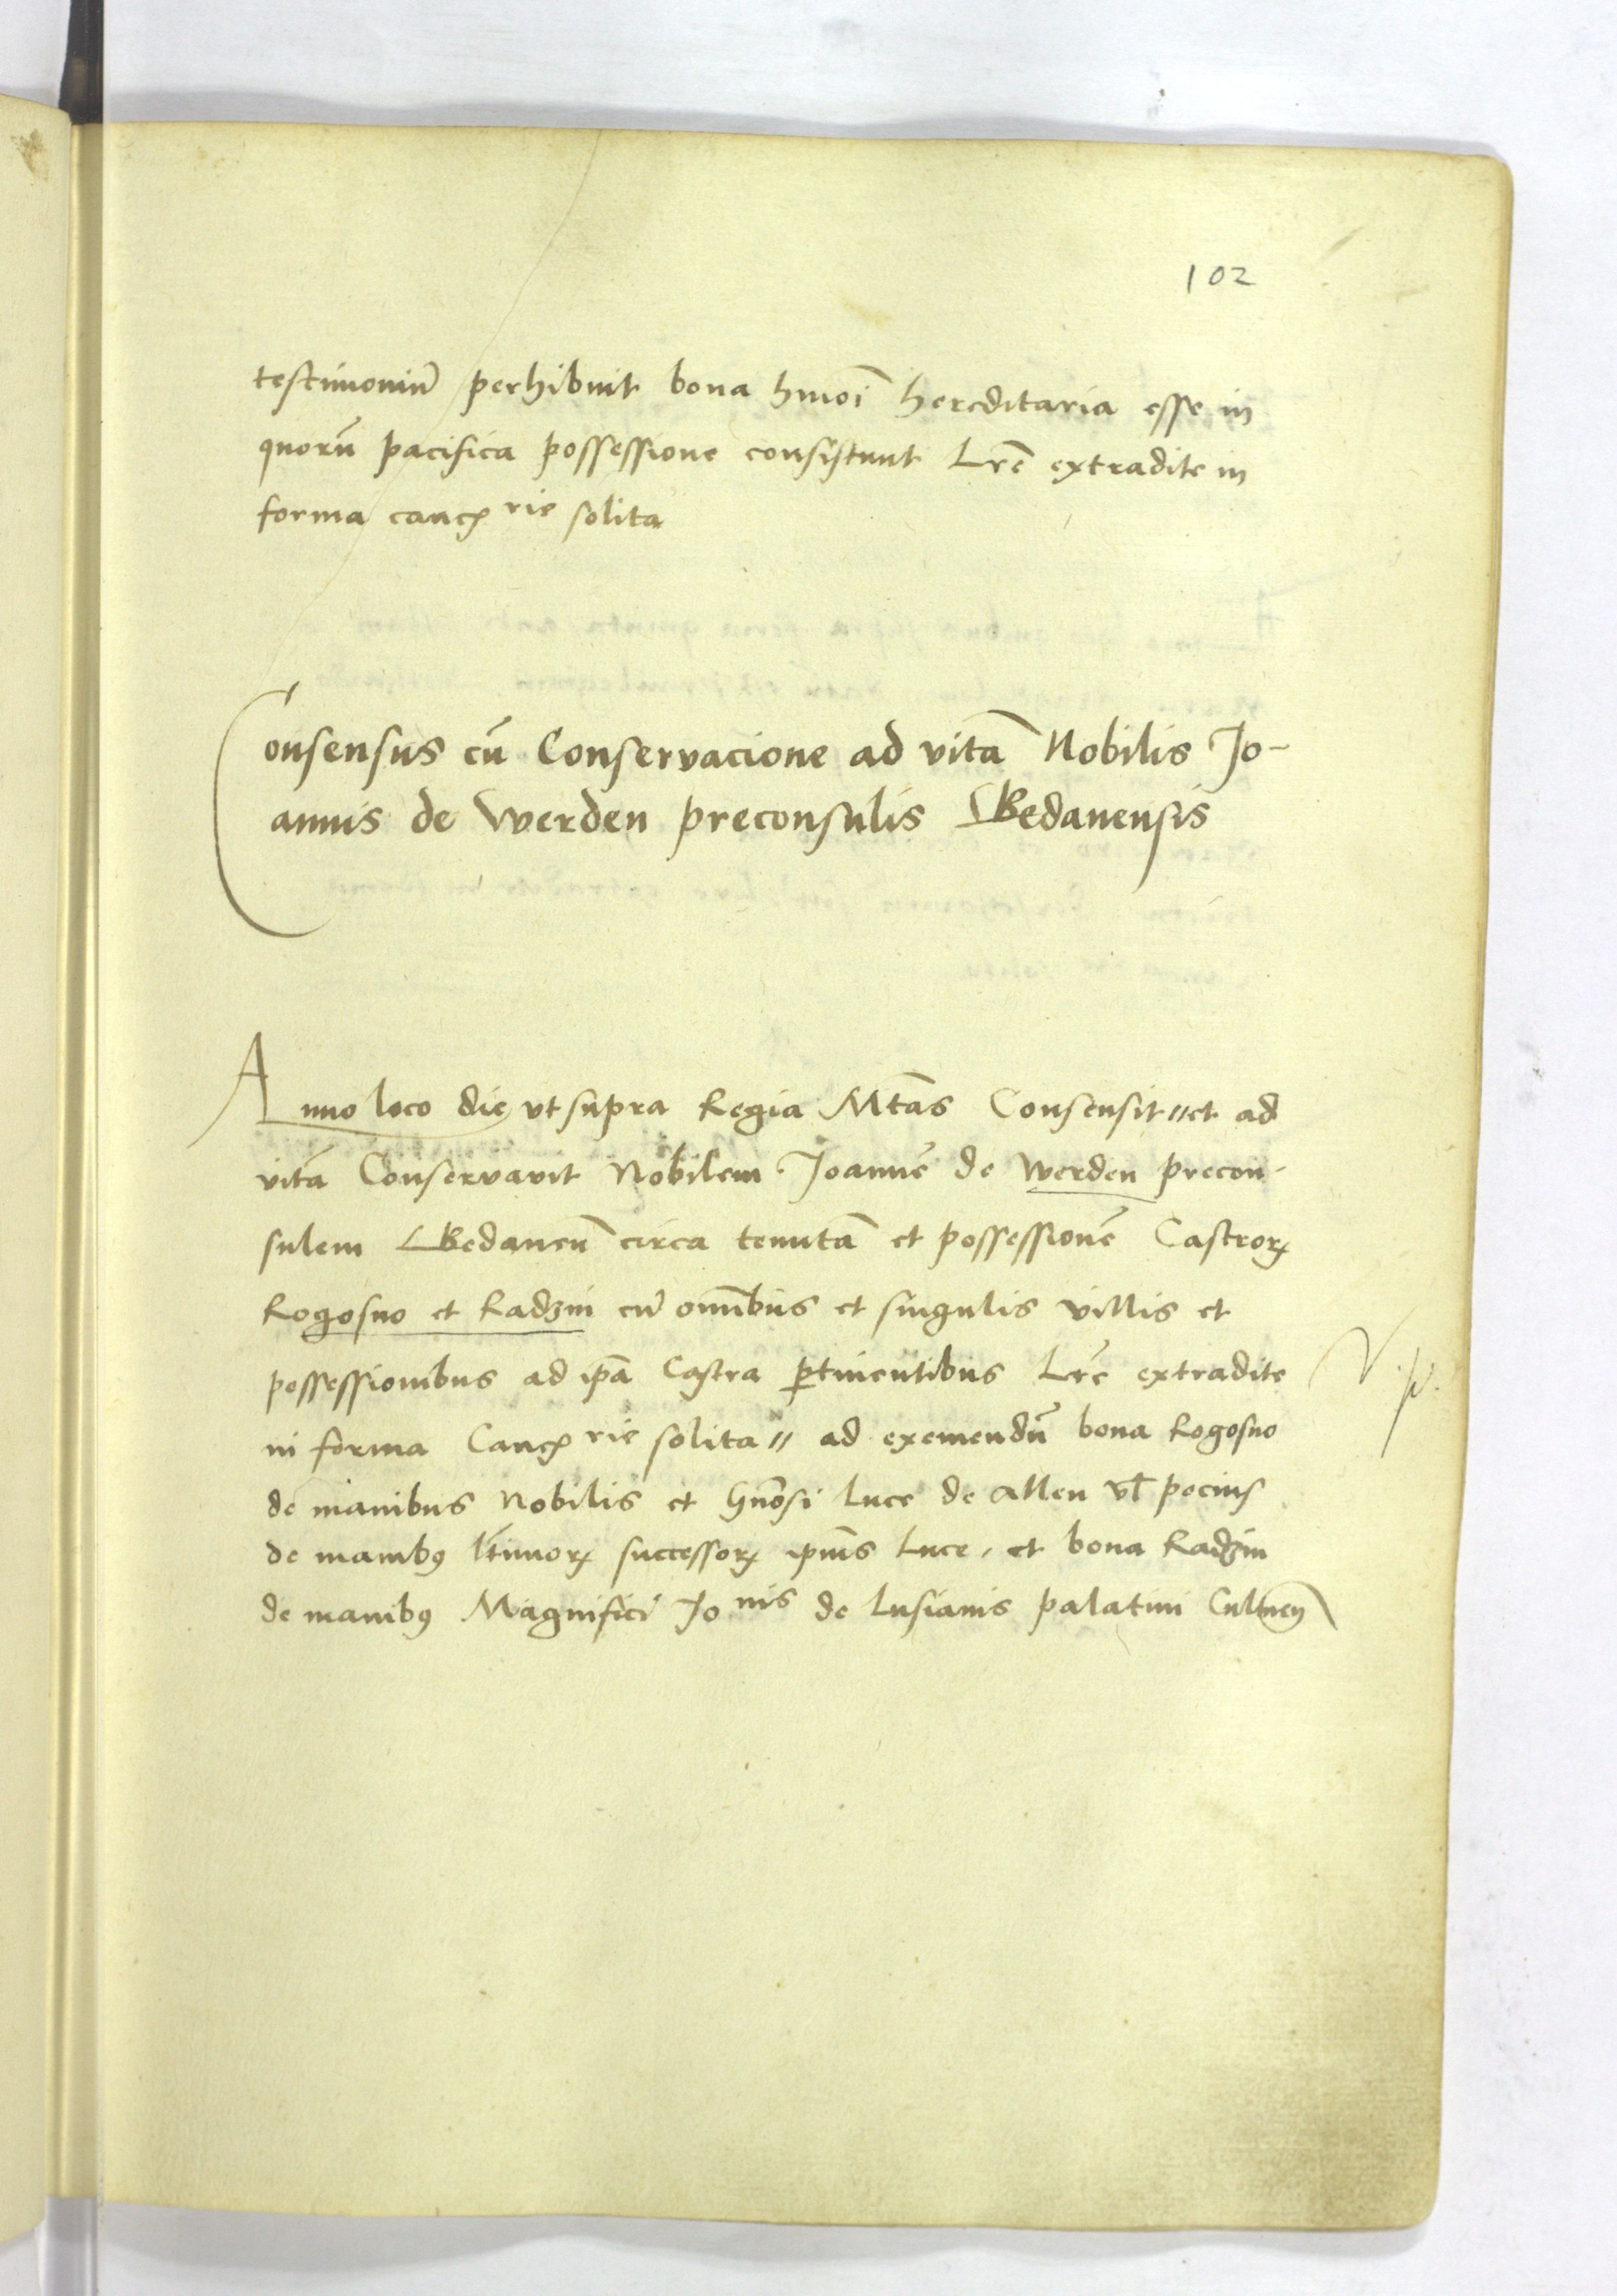 102
testimoniū perhibuit bona hmoī hereditaria esse in
quorū pacifica possessione consistunt Lrē extradite in
forma cancꝝ rie solita
Consensus cū Conservacione ad vitā Nobilis Jo-
annis de Werden preconsulis Gedanensis
Anno loco die vt supra Regia Mtās Consensit // et ad
vitā Conservavit Nobilem Joannē de Werden precon-
sulem Gedaneñ circa tenutā et possessionē Castroꝝ
Rogosno et Radzin cū omībus et singulis villis et
possessionibus ad ipā Castra ꝑtinentibus Lrē extradite
in forma Cancꝝ rie solita // ad exemendū bona Rogosno
de manibus Nobilis et Gñosi Luce de Allen vl pocius
de manibꝯ ltīmoꝝ successoꝝ ipīus Luce, et bona Radzin
de manibꝯ Magnifici Jo nis de Lusianis palatini Culmeñ